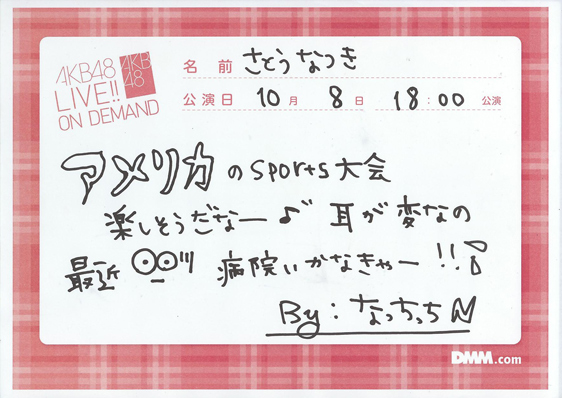 AKB48
LIVE!!
ON DEMAND
AKB
48
名前 さとうなつき
公演日 10月 8日 18:00 公演
アメリカのsports大会
楽しそうだなー♪ 耳が変なの
最近 病院いかなきゃー!!
By:なっちっち
DMM.com